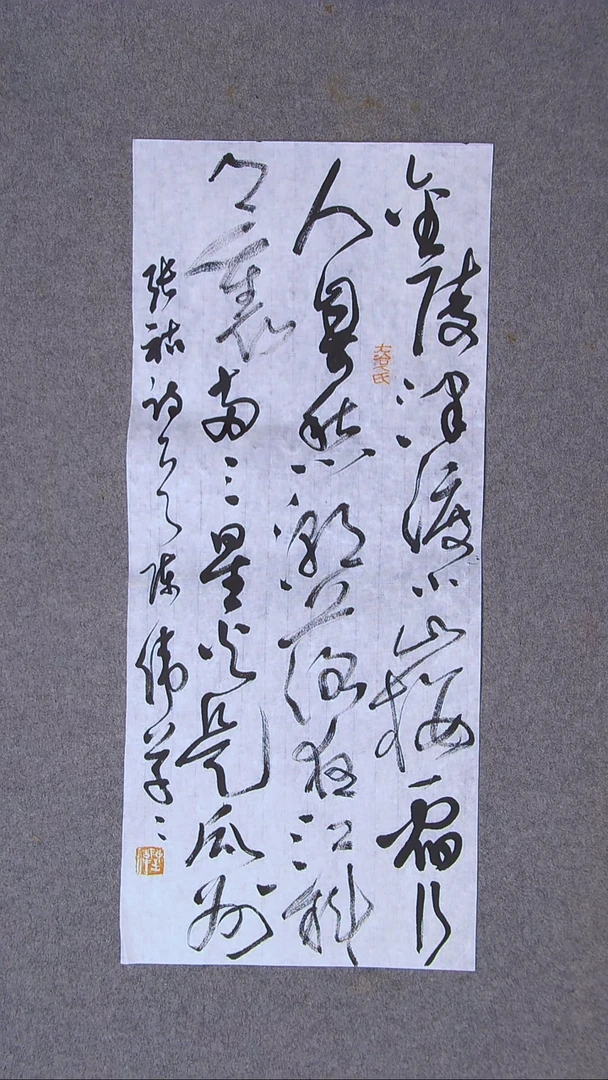 金陵津渡小山楼一宿行
人自可愁潮落夜江斜
月里两三星火是瓜州
张祜诗 陈伟草